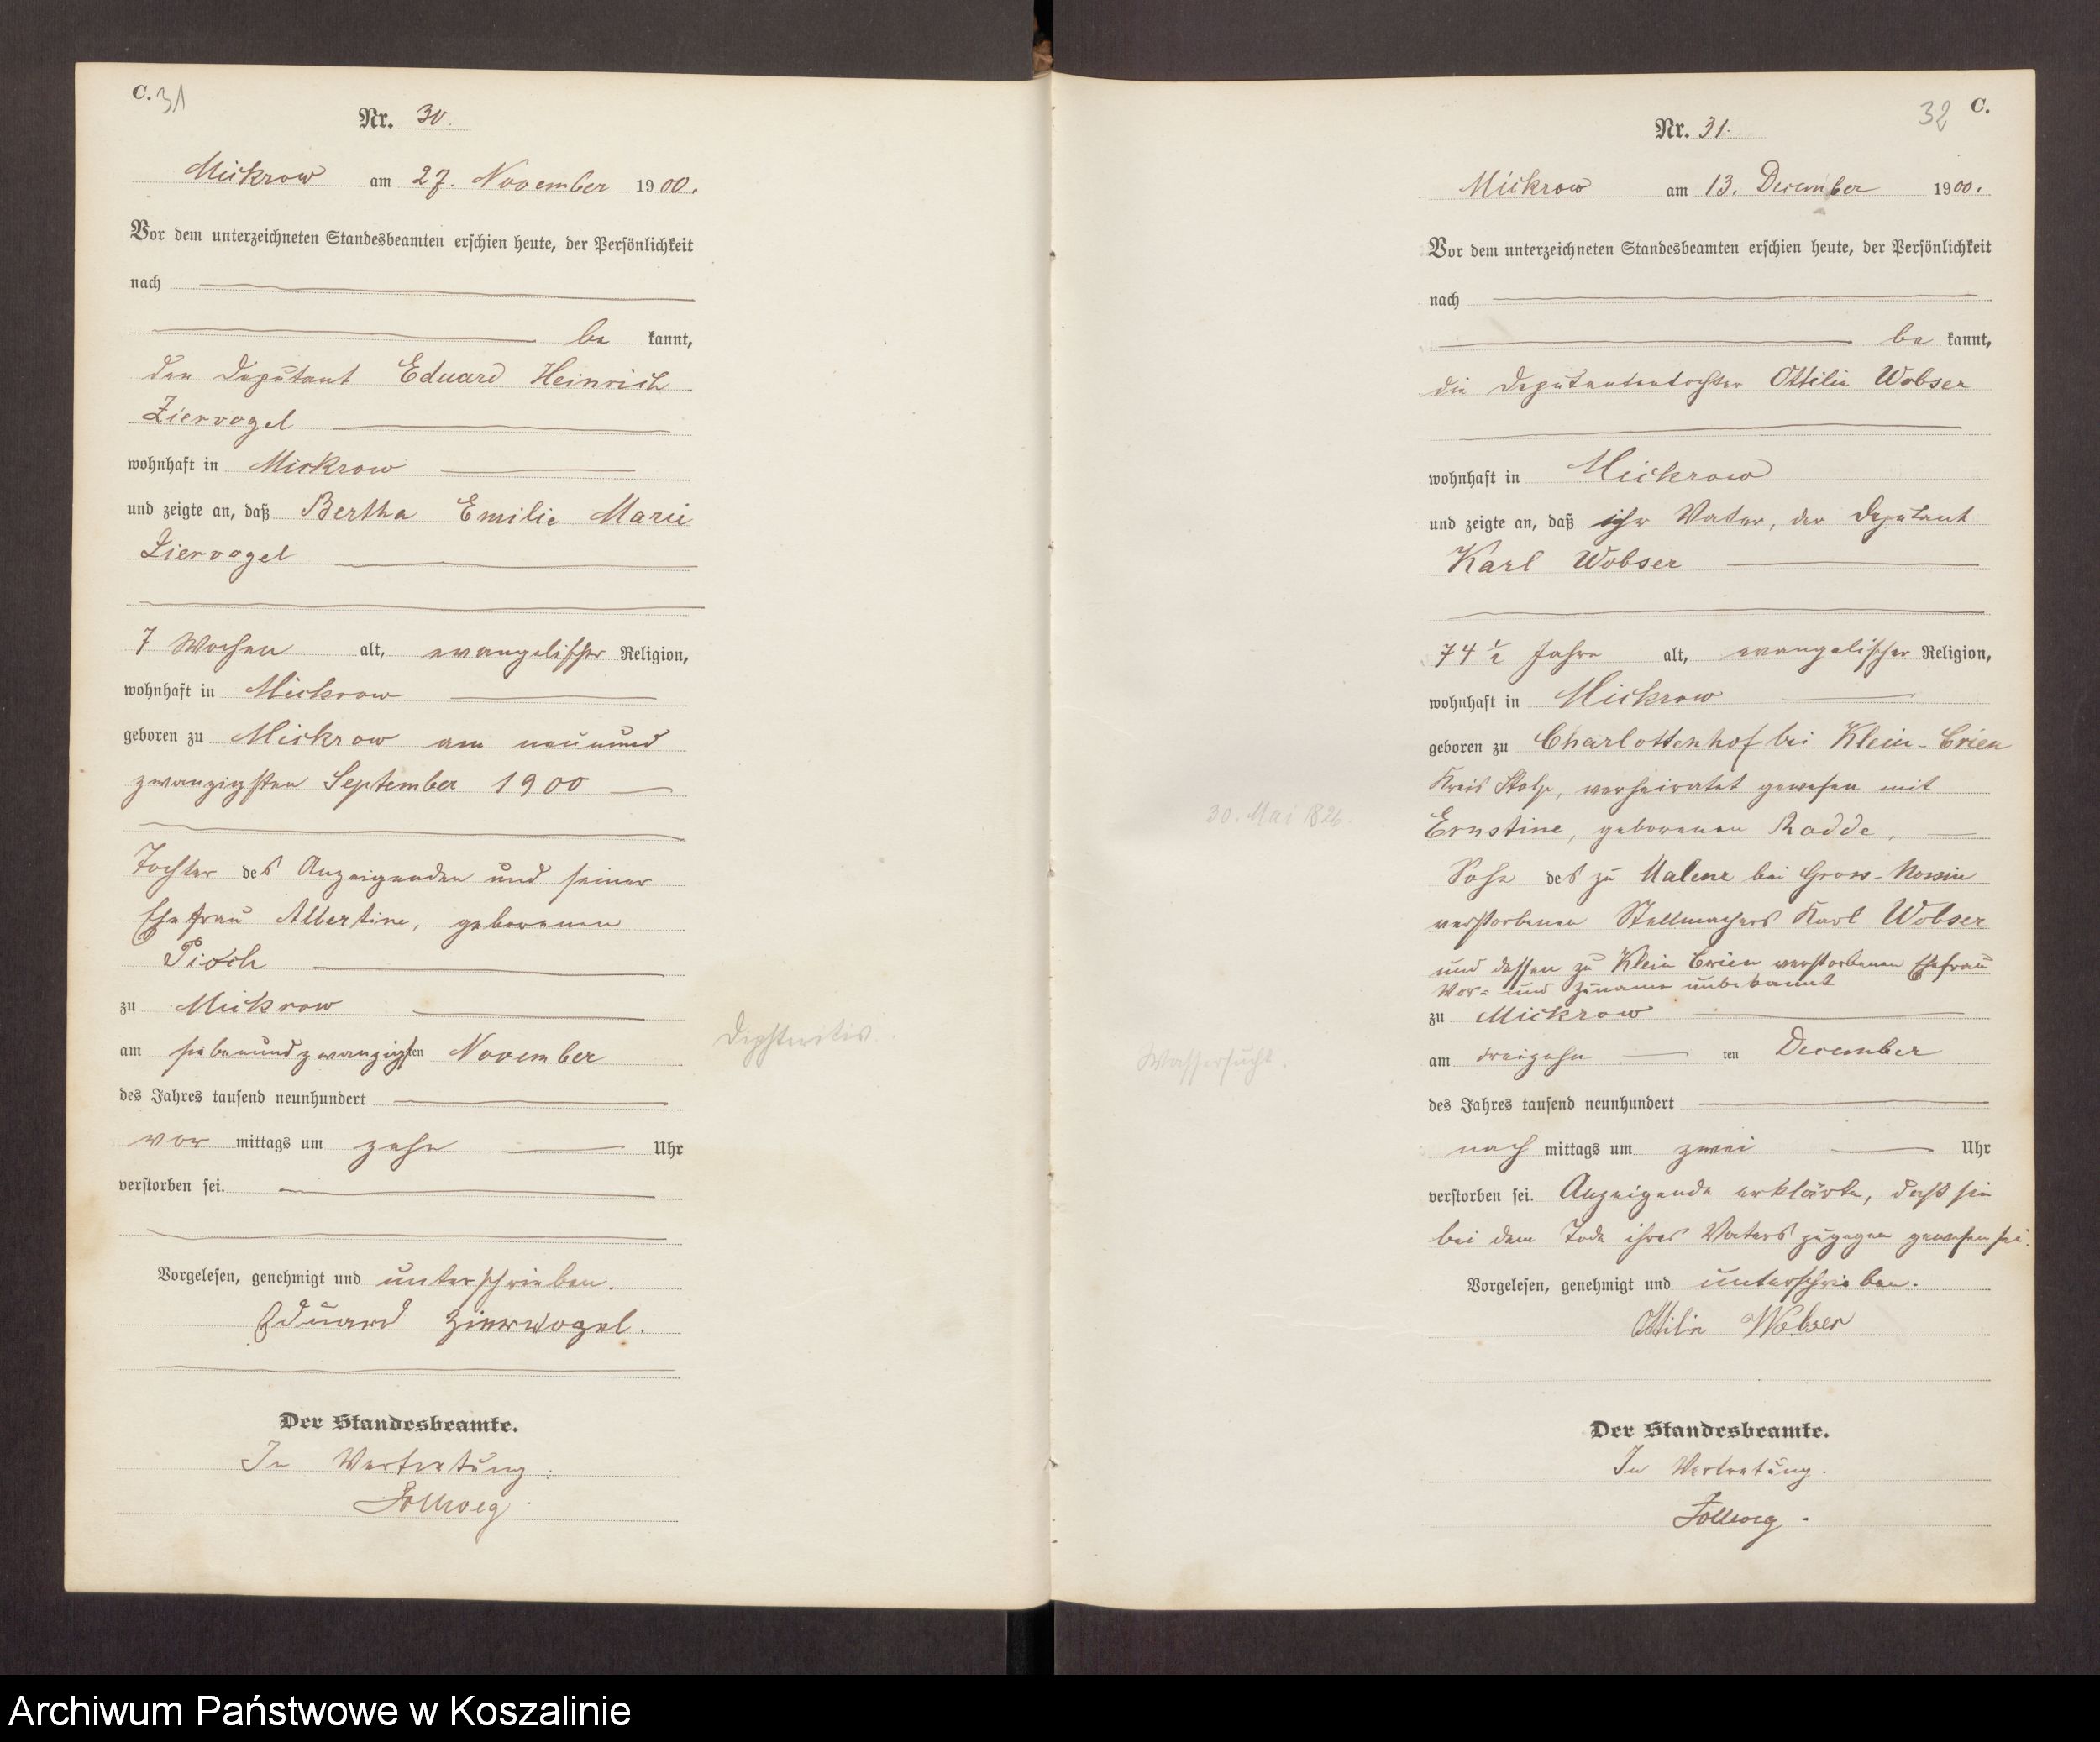 C. 31
Nr. 30.
Mickrow am 27. November 1900.
Vor dem unterzeichneten Standesbeamten erschien heute, der Persönlichkeit
nach
be kannt,
der Deputant Eduard Heinrich
Ziervogel
wohnhaft in Mickrow
und zeigte an, daß Bertha Emilie Marie
Ziervogel
7 Wochen alt, evangelischer Religion,
wohnhaft in Mickrow
geboren zu Mickrow am neunund
zwanzigsten September 1900
Tochter des Anzeigenden und seiner
Ehefrau Albertine, geborenen
zu Mickrow
am siebenundzwanzigsten November
des Jahres tausend neunhundert
vor mittags um zehn Uhr
verstorben sei.
Diphteritis.
Vorgelesen, genehmigt und unterschrieben.
Eduard Ziervogel.
Der Standesbeamte.
In Vertretung.
32 C.
Nr. 31.
Mickrow am 13. December 1900.
Vor dem unterzeichneten Standesbeamten erschien heute, der Persönlichkeit
nach
be kannt,
die Deputantentochter Ottilie Wobser
wohnhaft in Mickrow
und zeigte an, daß ihr Vater, der Deputant
Karl Wobser
74 1/2 Jahre alt, evangelischer Religion,
wohnhaft in Mickrow
geboren zu Charlottenhof bei Klein-Crien
Kreis Stolp, verheiratet gewesen mit
30. Mai 1826.
Ernstine, geborenen Radde,
Sohn des zu bei Gross-Nossin
verstorbenen Stellmachers Karl Wobser
und dessen zu Klein Crien verstorbenen Ehefrau
Vor- und Zuname unbekannt
zu Mickrow
am dreizehn ten December
Wassersucht.
des Jahres tausend neunhundert
nach mittags um zwei Uhr
verstorben sei. Anzeigende erklärte, daß sie
bei dem Tode ihres Vaters zugegen gewesen sei.
Vorgelesen, genehmigt und unterschrieben.
Ottilie Wobser
Der Standesbeamte.
In Vertretung.
Archiwum Państwowe w Koszalinie